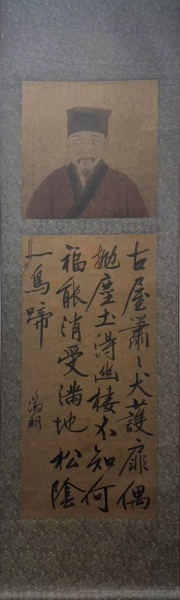 古屋蕭〻犬護扉偶
拋塵土得幽棲不知何
福能消受滿地松陰
一鳥啼
徵明